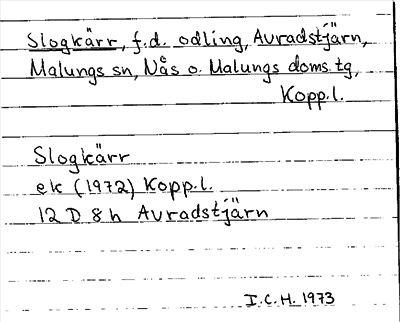 Slogkärr, f.d. odling, Avradstjärn,
Malungs sn, Nås o. Malungs doms.tg,
Kopp.l.
Slogkärr
ek (1972) Kopp.l.
12 D 8 h Avradstjärn
I.C.H. 1973